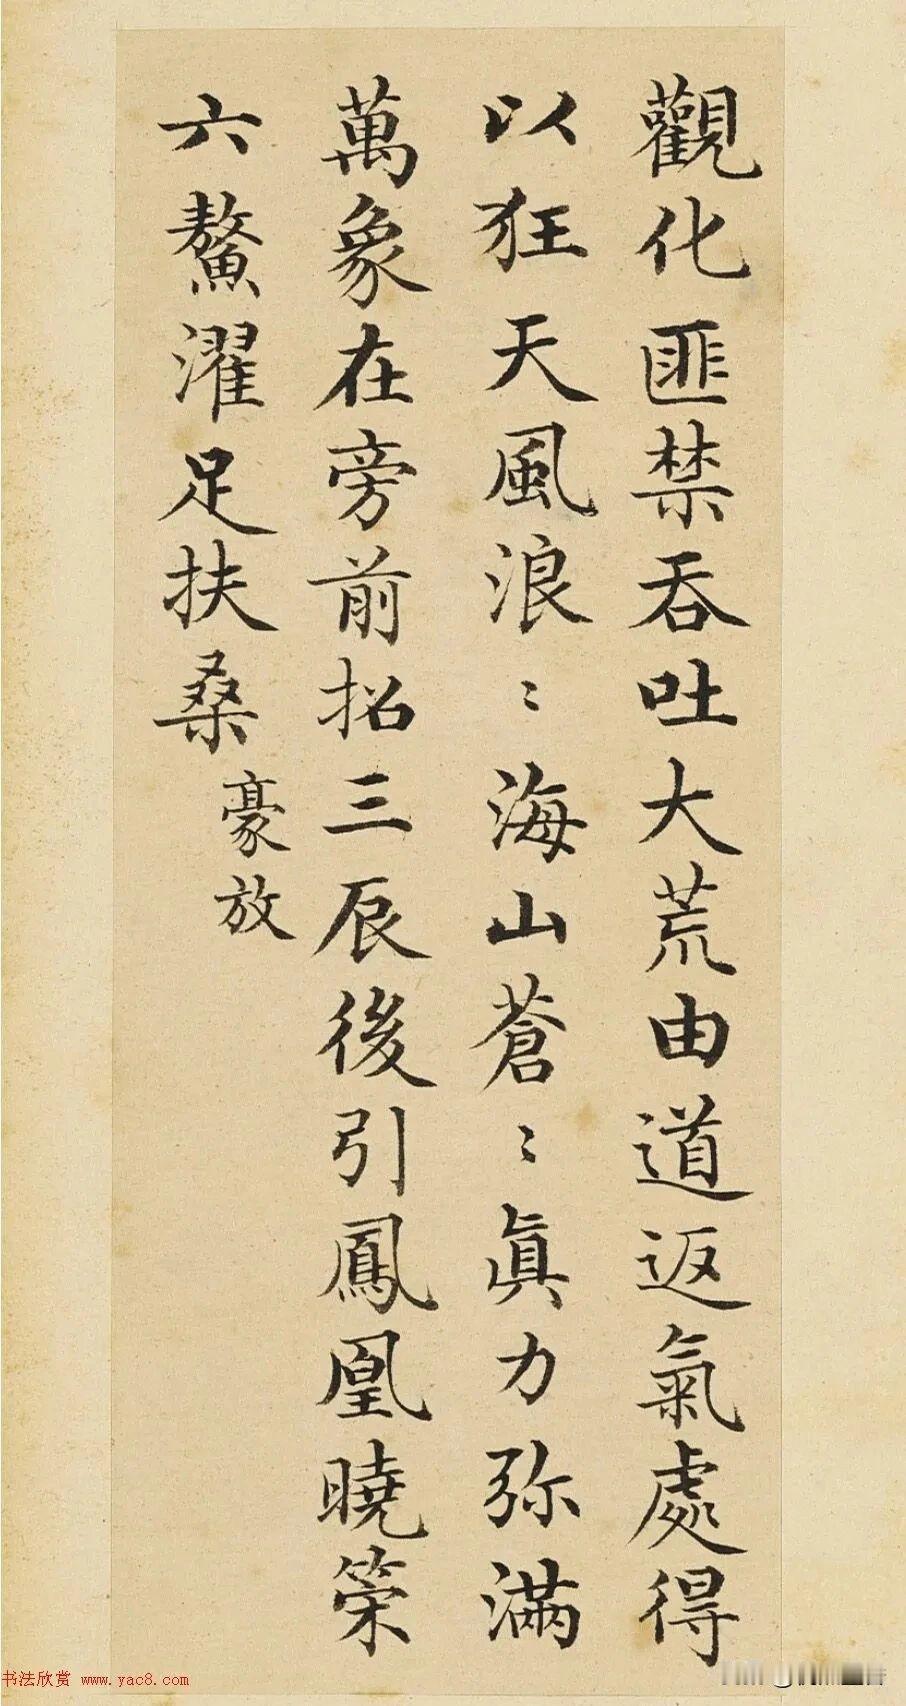 觀化匪禁吞吐大荒由道返氣處得
以狂天風浪〻海山蒼〻眞力弥滿
萬象在旁前招三辰後引鳳凰曉筞
六鰲濯足扶桑
豪放
书法欣赏 www.yac8.com